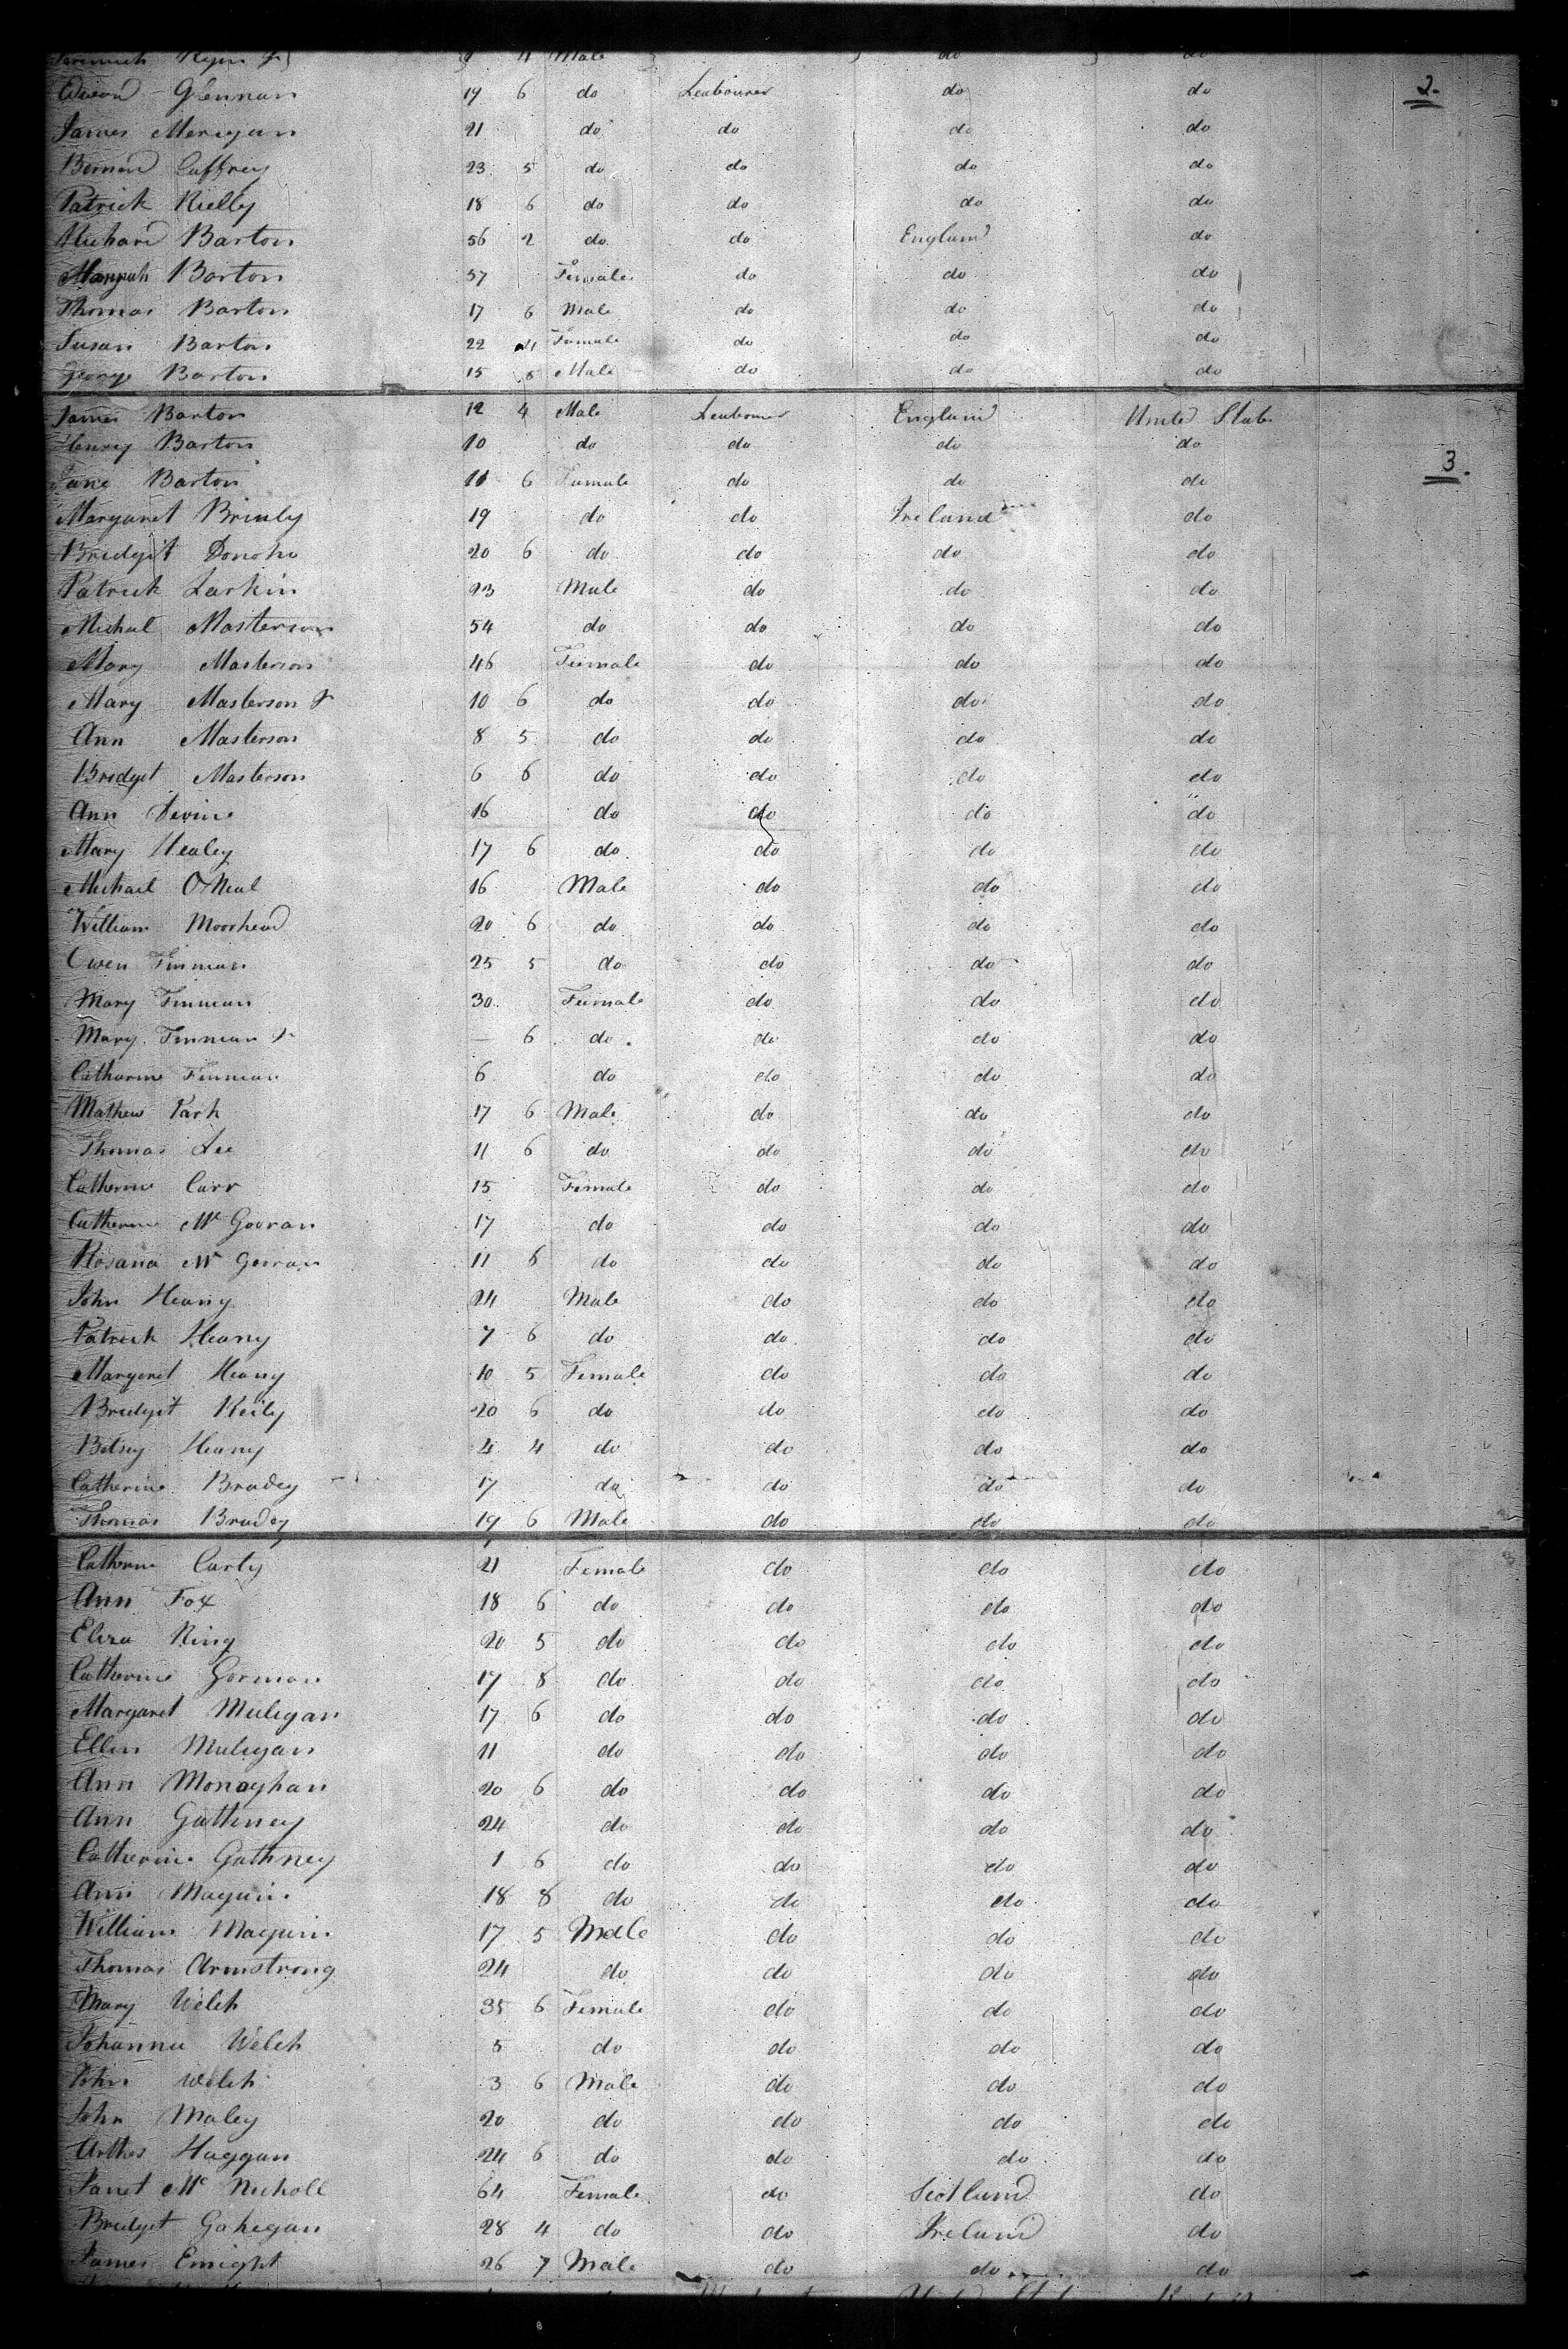 Ryan Jr 9 4 Male do do
Glennan 19 6 do Labourer do do 2.
James Merigan 21 do do do do
Bernard Caffrey 23 5 do do do do
Patrick Rielly 18 6 do do do do
Richard Barton 56 2 do do England do
Hannah Barton 57 Female do do do
Thomas Barton 17 6 Male do do do
Susan Barton 22 4 Female do do do
George Barton 15 6 Male do do do
James Barton 12 4 Male Labourer England United Stats
Henry Barton 10 do do do do
Jane Barton 11 6 Female do do do 3.
Margaret Brinly 19 do do Ireland do
Bridgit Donoho 20 6 do do do do
Patrick Larkin 23 Male do do do
Michal Masterson 54 do do do do
Mary Masterson 46 Female do do do
Mary Masterson Jr 10 6 do do do do
Ann Masterson 8 5 do do do do
Bridget Masterson 6 6 do do do do
Ann Devine 16 do do do do
Mary Healey 17 6 do do do do
Michael O'Neal 16 Male do do do
William Moorhead 20 6 do do do do
Owen Finnean 25 5 do do do do
Mary Finnean 30 Female do do do
Mary Finnean Jr — 6 do do do do
Catharine Finnean 6 do do do do
Mathew Park 17 6 Male do do do
Thomas Lee 11 6 do do do do
Catherine Carr 15 Female do do do
Catherine Mc Gouran 17 do do do do
Rosana Mc Gouran 11 6 do do do do
John Heany 24 Male do do do
Patrick Heany 7 6 do do do do
Margaret Heany 10 5 Female do do do
Bridgit Reily 20 6 do do do do
Betsey Heany 4 4 do do do do
Catherine Bradey 17 do do do do
Thomas Bradey 19 6 Male do do do
Catherine Carly 21 Female do do do
Ann Fox 18 6 do do do do
Eliza King 20 5 do do do do
Catherine Gorman 17 8 do do do do
Margaret Muligan 17 6 do do do do
Ellen Muligan 11 do do do do
Ann Monaghan 20 6 do do do do
Ann Gathney 24 do do do do
Catherine Gathney 1 6 do do do do
Ann Maguire 18 8 do do do do
William Maguire 17 5 Male do do do
Thomas Armstrong 24 do do do do
Mary Welch 35 6 Female do do do
Johanna Welch 5 do do do do
John Welch 3 6 Male do do do
John Maley 20 do do do do
Arthur Haggan 24 6 do do do do
Janet Mc Nicholl 64 Female do Scotland do
Bridget Gahegan 28 4 do do Ireland do
James Enright 26 7 Male do do do